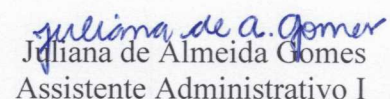 juliana de a. gomes
Juliana de Almeida Gomes
Assistente Administrativo I